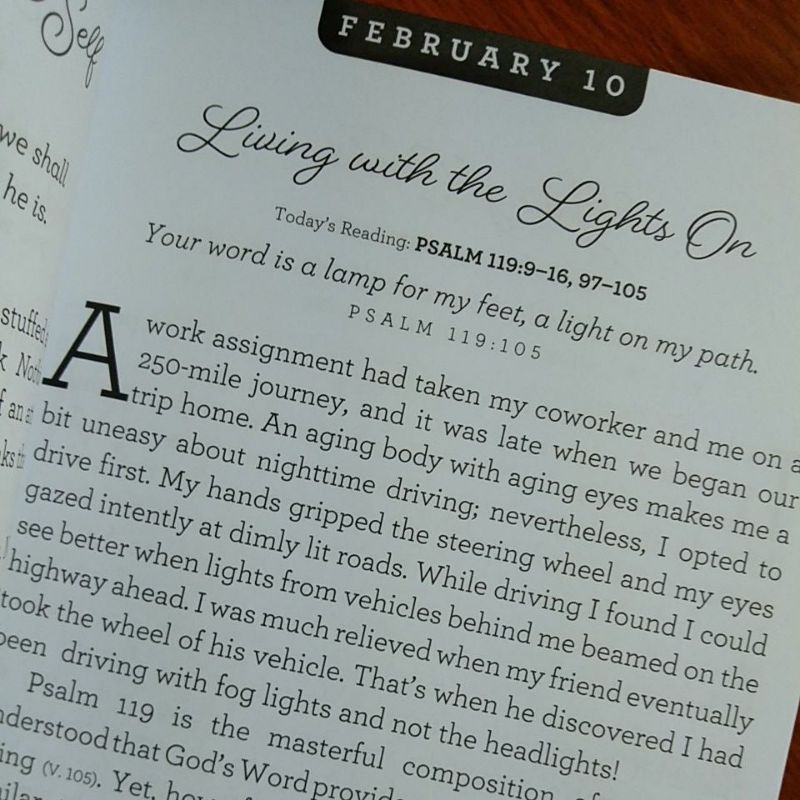 Self
we shall
he is.
stuffed
FEBRUARY 10
Living with the Lights On
Today's Reading: PSALM 119:9–16, 97–105
Your word is a lamp for my feet, a light on my path.
PSALM 119:105
A work assignment had taken my coworker and me on a
250-mile journey, and it was late when we began our
trip home. An aging body with aging eyes makes me a
bit uneasy about nighttime driving; nevertheless, I opted to
drive first. My hands gripped the steering wheel and my eyes
gazed intently at dimly lit roads. While driving I found I could
see better when lights from vehicles behind me beamed on the
highway ahead. I was much relieved when my friend eventually
took the wheel of his vehicle. That's when he discovered I had
been driving with fog lights and not the headlights!
Psalm 119 is the masterful composition of
nderstood that God's Word provide
ing (V. 105). Yet, how